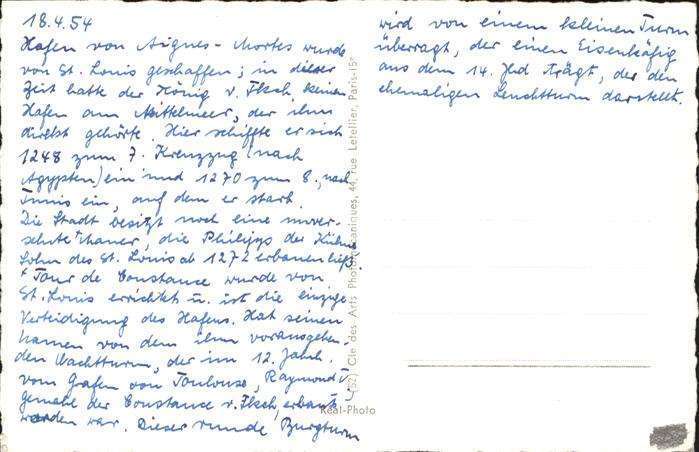 18.4.54
Hafen von Aigues-Mortes wurde
von St. Louis geschaffen; in dieser
Zeit hatte der König v. Fksch. keinen
Hafen am Mittelmeer, der ihm
direkt gehörte. Hier schiffte er sich
1248 zum 7. Kreuzzug (nach
Ägypten) ein und 1270 zum 8., nach
Tunis ein, auf dem er starb.
Die Stadt besitzt noch eine unver-
sehrte Mauer, die Philipps der Kühne
Sohn des St. Louis ab 1272 erbauen ließ.
Tour de Constance wurde von
St. Louis errichtet u. ist die einzige
Verteidigung des Hafens. Hat seinen
Namen von dem ihm vorausgehen-
den Wachtturm, der im 12. Jahrh.
vom Grafen von Toulouse, Raymond V,
Gemahl der Constance v. Fksch, erbaut
worden war. Dieser runde Burgturm
wird von einem kleinen Turm
überragt, der einen Eisenkäfig
aus dem 14. Jhd trägt, der den
ehemaligen Leuchtturm darstellt.
Cie des Arts Photomécaniques, 44, rue Letellier, Paris-15e
Real-Photo